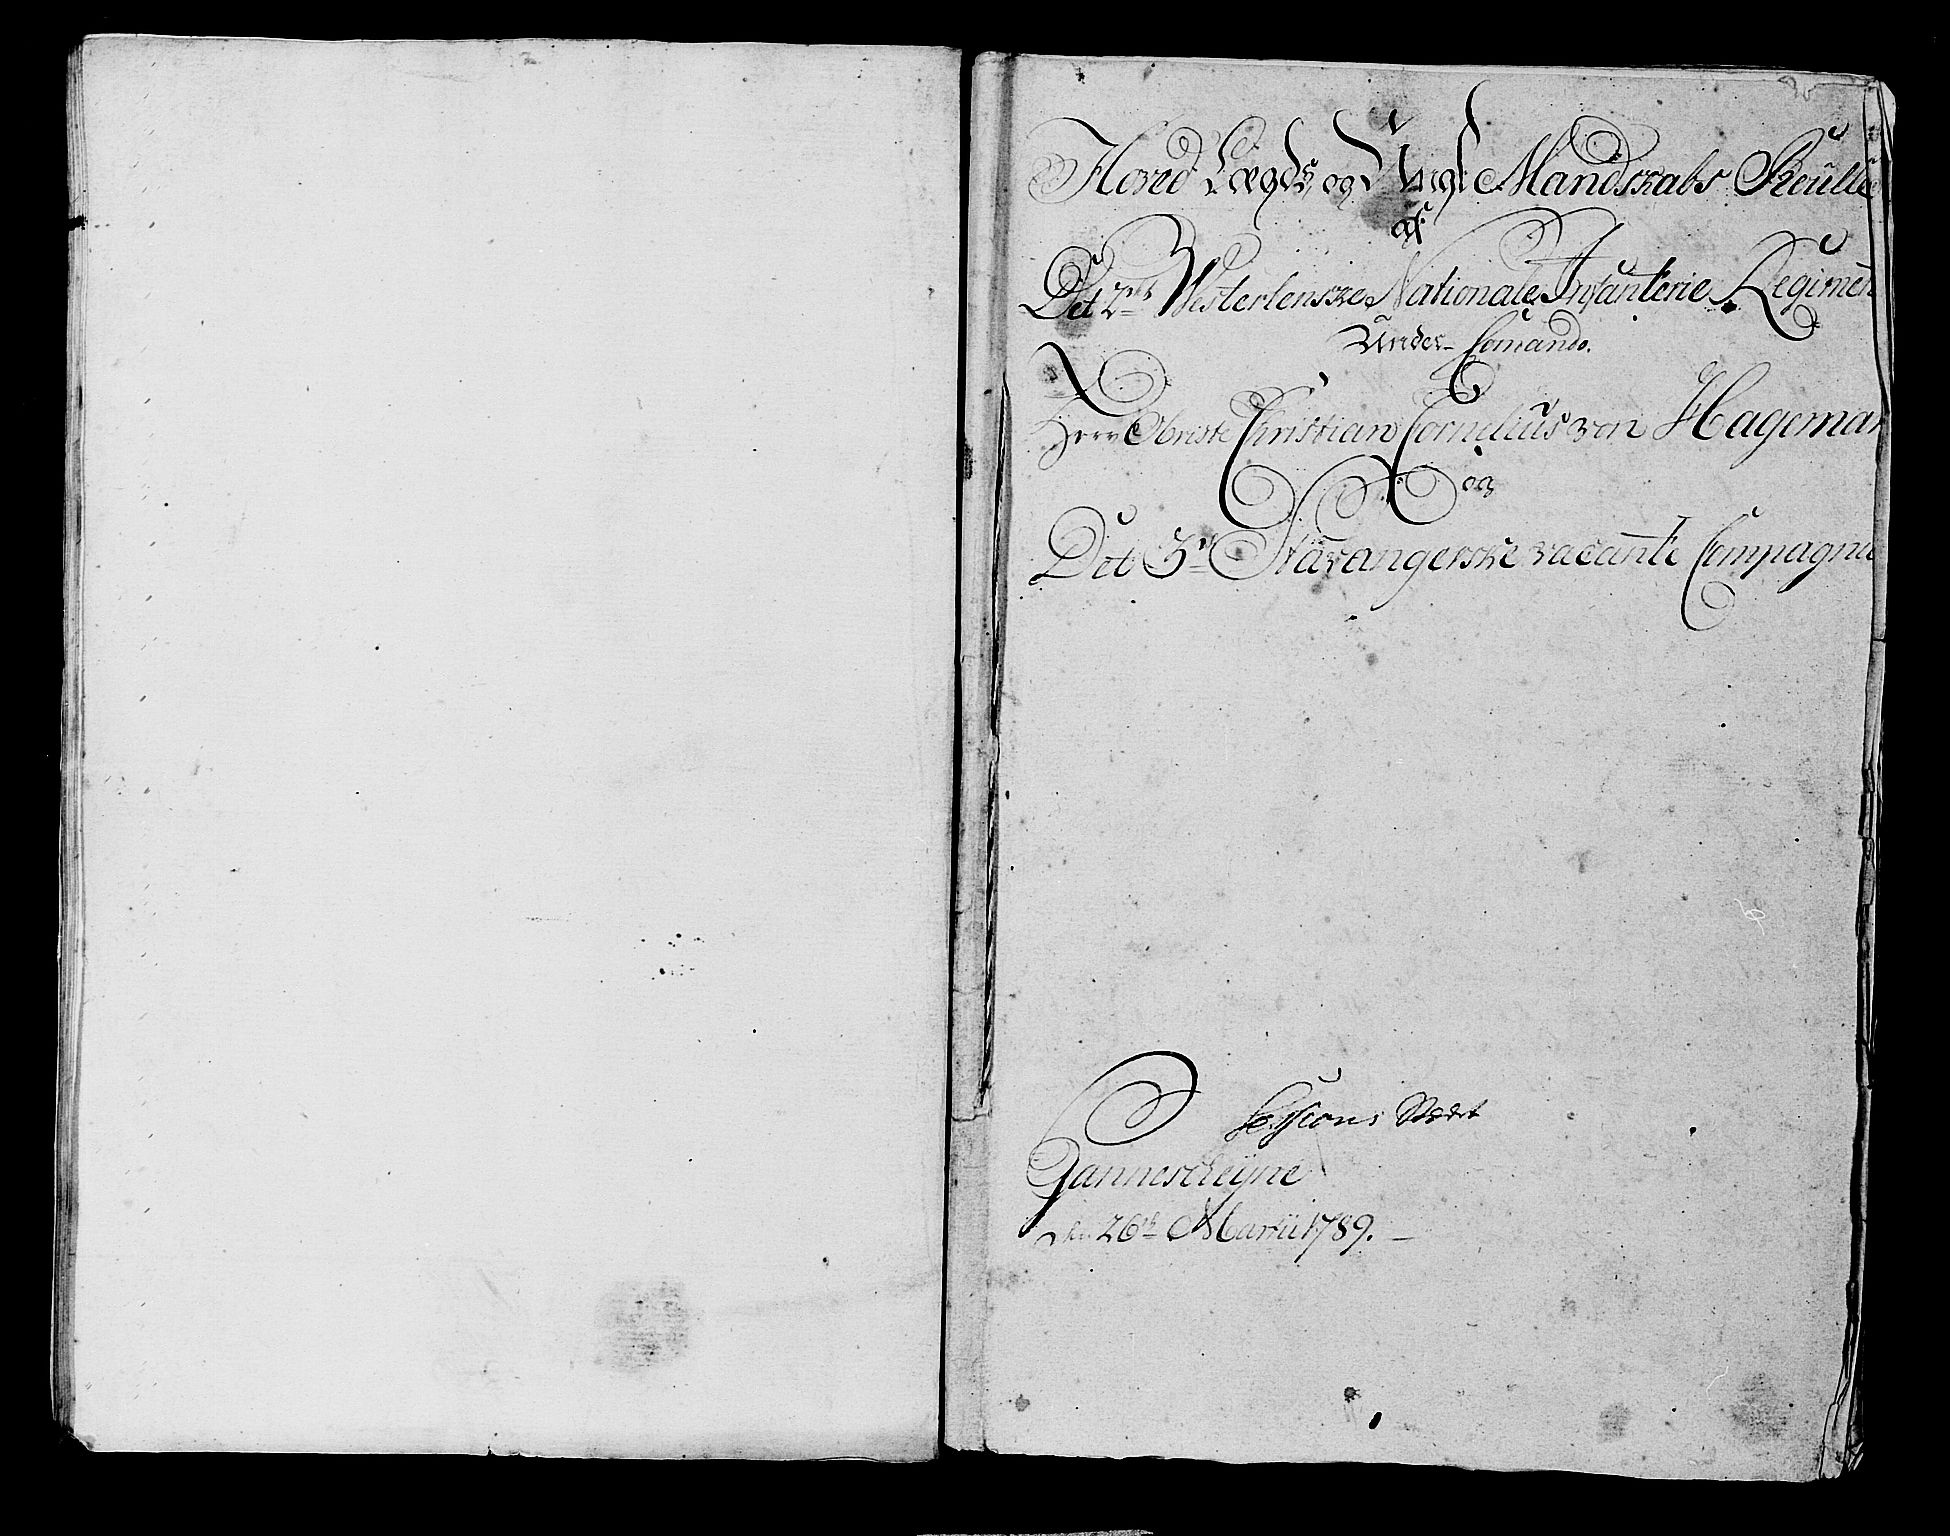 Hoved Lægds og Ungt Mandskabs Roulle
af
Det 2det Westerlenske Nationale Infanterie Regiment
Under Comando.
Herr Obriste Christian Cornelius von Hageman
og
Det 5te Stavangerske vacante Compagnie
Sessions Stædet
Jannescleyne
den 26de Martii 1789.